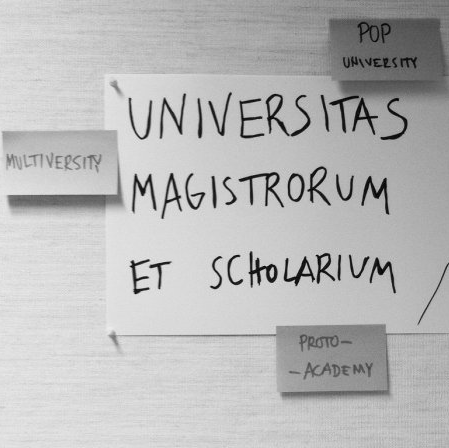 POP
UNIVERSITY
UNIVERSITAS
MULTIVERSITY
MAGISTRORUM
ET SCHOLARIUM
PROTO-
-ACADEMY